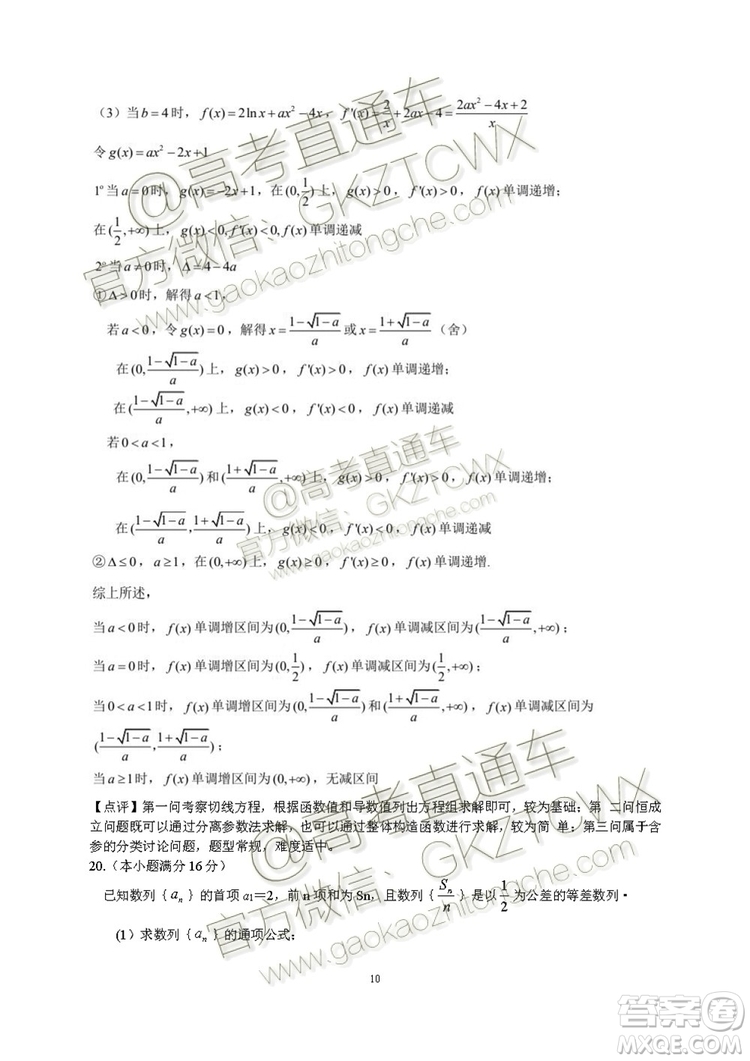 （3）当b=4时，f(x)=2lnx+ax²−4x，f'(x)=2/x+2ax−4=(2ax²−4x+2)/x
令g(x)=ax²−2x+1
1°当a=0时，g(x)=−2x+1，在(0,1/2)上，g(x)>0，f'(x)>0，f(x)单调递增；
在(1/2,+∞)上，g(x)<0,f'(x)<0,f(x)单调递减
2°当a≠0时，Δ=4−4a
①Δ>0时，解得a<1，
若a<0，令g(x)=0，解得x=(1−√(1−a))/a或x=(1+√(1−a))/a（舍）
在(0,(1−√(1−a))/a)上，g(x)>0，f'(x)>0，f(x)单调递增；
在((1−√(1−a))/a,+∞)上，g(x)<0，f'(x)<0，f(x)单调递减
若0<a<1，
在(0,(1−√(1−a))/a)和((1+√(1−a))/a,+∞)上，g(x)>0，f'(x)>0，f(x)单调递增；
在((1−√(1−a))/a,(1+√(1−a))/a)上，g(x)<0，f'(x)<0，f(x)单调递减
②Δ≤0，a≥1，在(0,+∞)上，g(x)≥0，f'(x)≥0，f(x)单调递增.
综上所述，
当a<0时，f(x)单调增区间为(0,(1−√(1−a))/a)，f(x)单调减区间为((1−√(1−a))/a,+∞)；
当a=0时，f(x)单调增区间为(0,1/2)，f(x)单调减区间为(1/2,+∞)；
当0<a<1时，f(x)单调增区间为(0,(1−√(1−a))/a)和((1+√(1−a))/a,+∞)，f(x)单调减区间为
((1−√(1−a))/a,(1+√(1−a))/a)；
当a≥1时，f(x)单调增区间为(0,+∞)，无减区间
【点评】第一问考察切线方程，根据函数值和导数值列出方程组求解即可，较为基础；第 二问恒成
立问题既可以通过分离参数法求解，也可以通过整体构造函数进行求解，较为简 单；第三问属于含
参的分类讨论问题，题型常规，难度适中。
20.（本小题满分16分）
已知数列{aₙ}的首项a₁=2，前n项和为Sn，且数列{Sₙ/n}是以1/2为公差的等差数列·
(1）求数列{aₙ}的通项公式；
10
@高考直通车
官方微信：GKZTCWX
www.gaokaozhitongche.com
@高考直通车
官方微信：GKZTCWX
www.gaokaozhitongche.com
@高考直通车
官方微信：GKZTCWX
www.gaokaozhitongche.com
答案圈
MXQE.COM